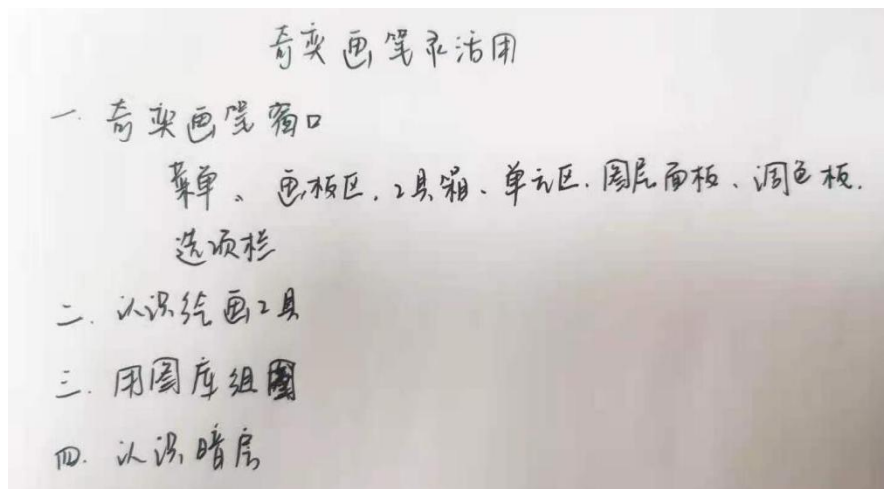 奇奕画笔灵活用
一. 奇奕画笔窗口
菜单、画板区、工具箱、单元区、图层面板、调色板、
选项栏
二. 认识绘画工具
三. 用图库组图
四. 认识暗房